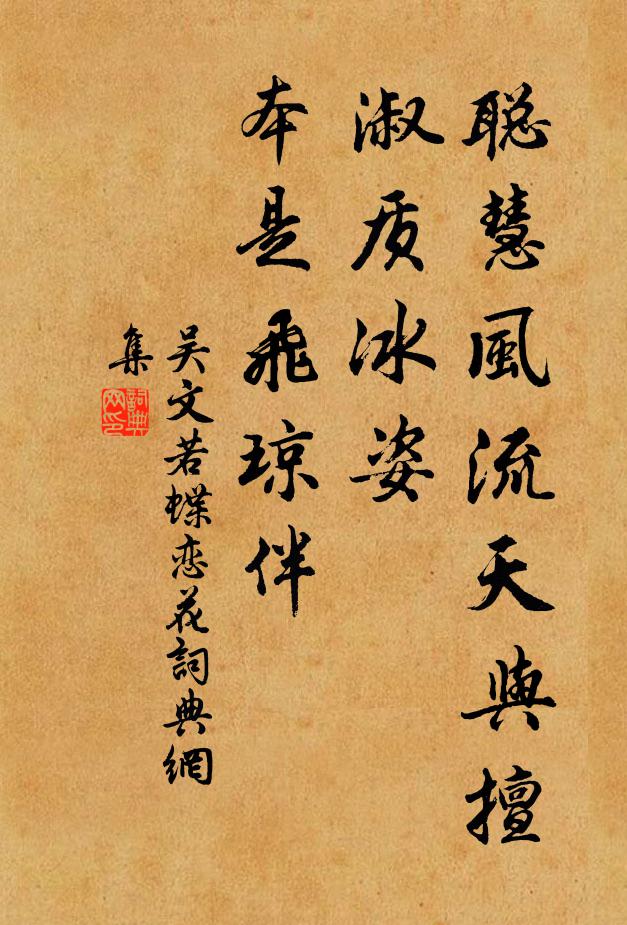 聪慧風流天與擅
淑质冰姿
本是飛琼伴
吴文若蝶恋花詞典網
集
詞典網印